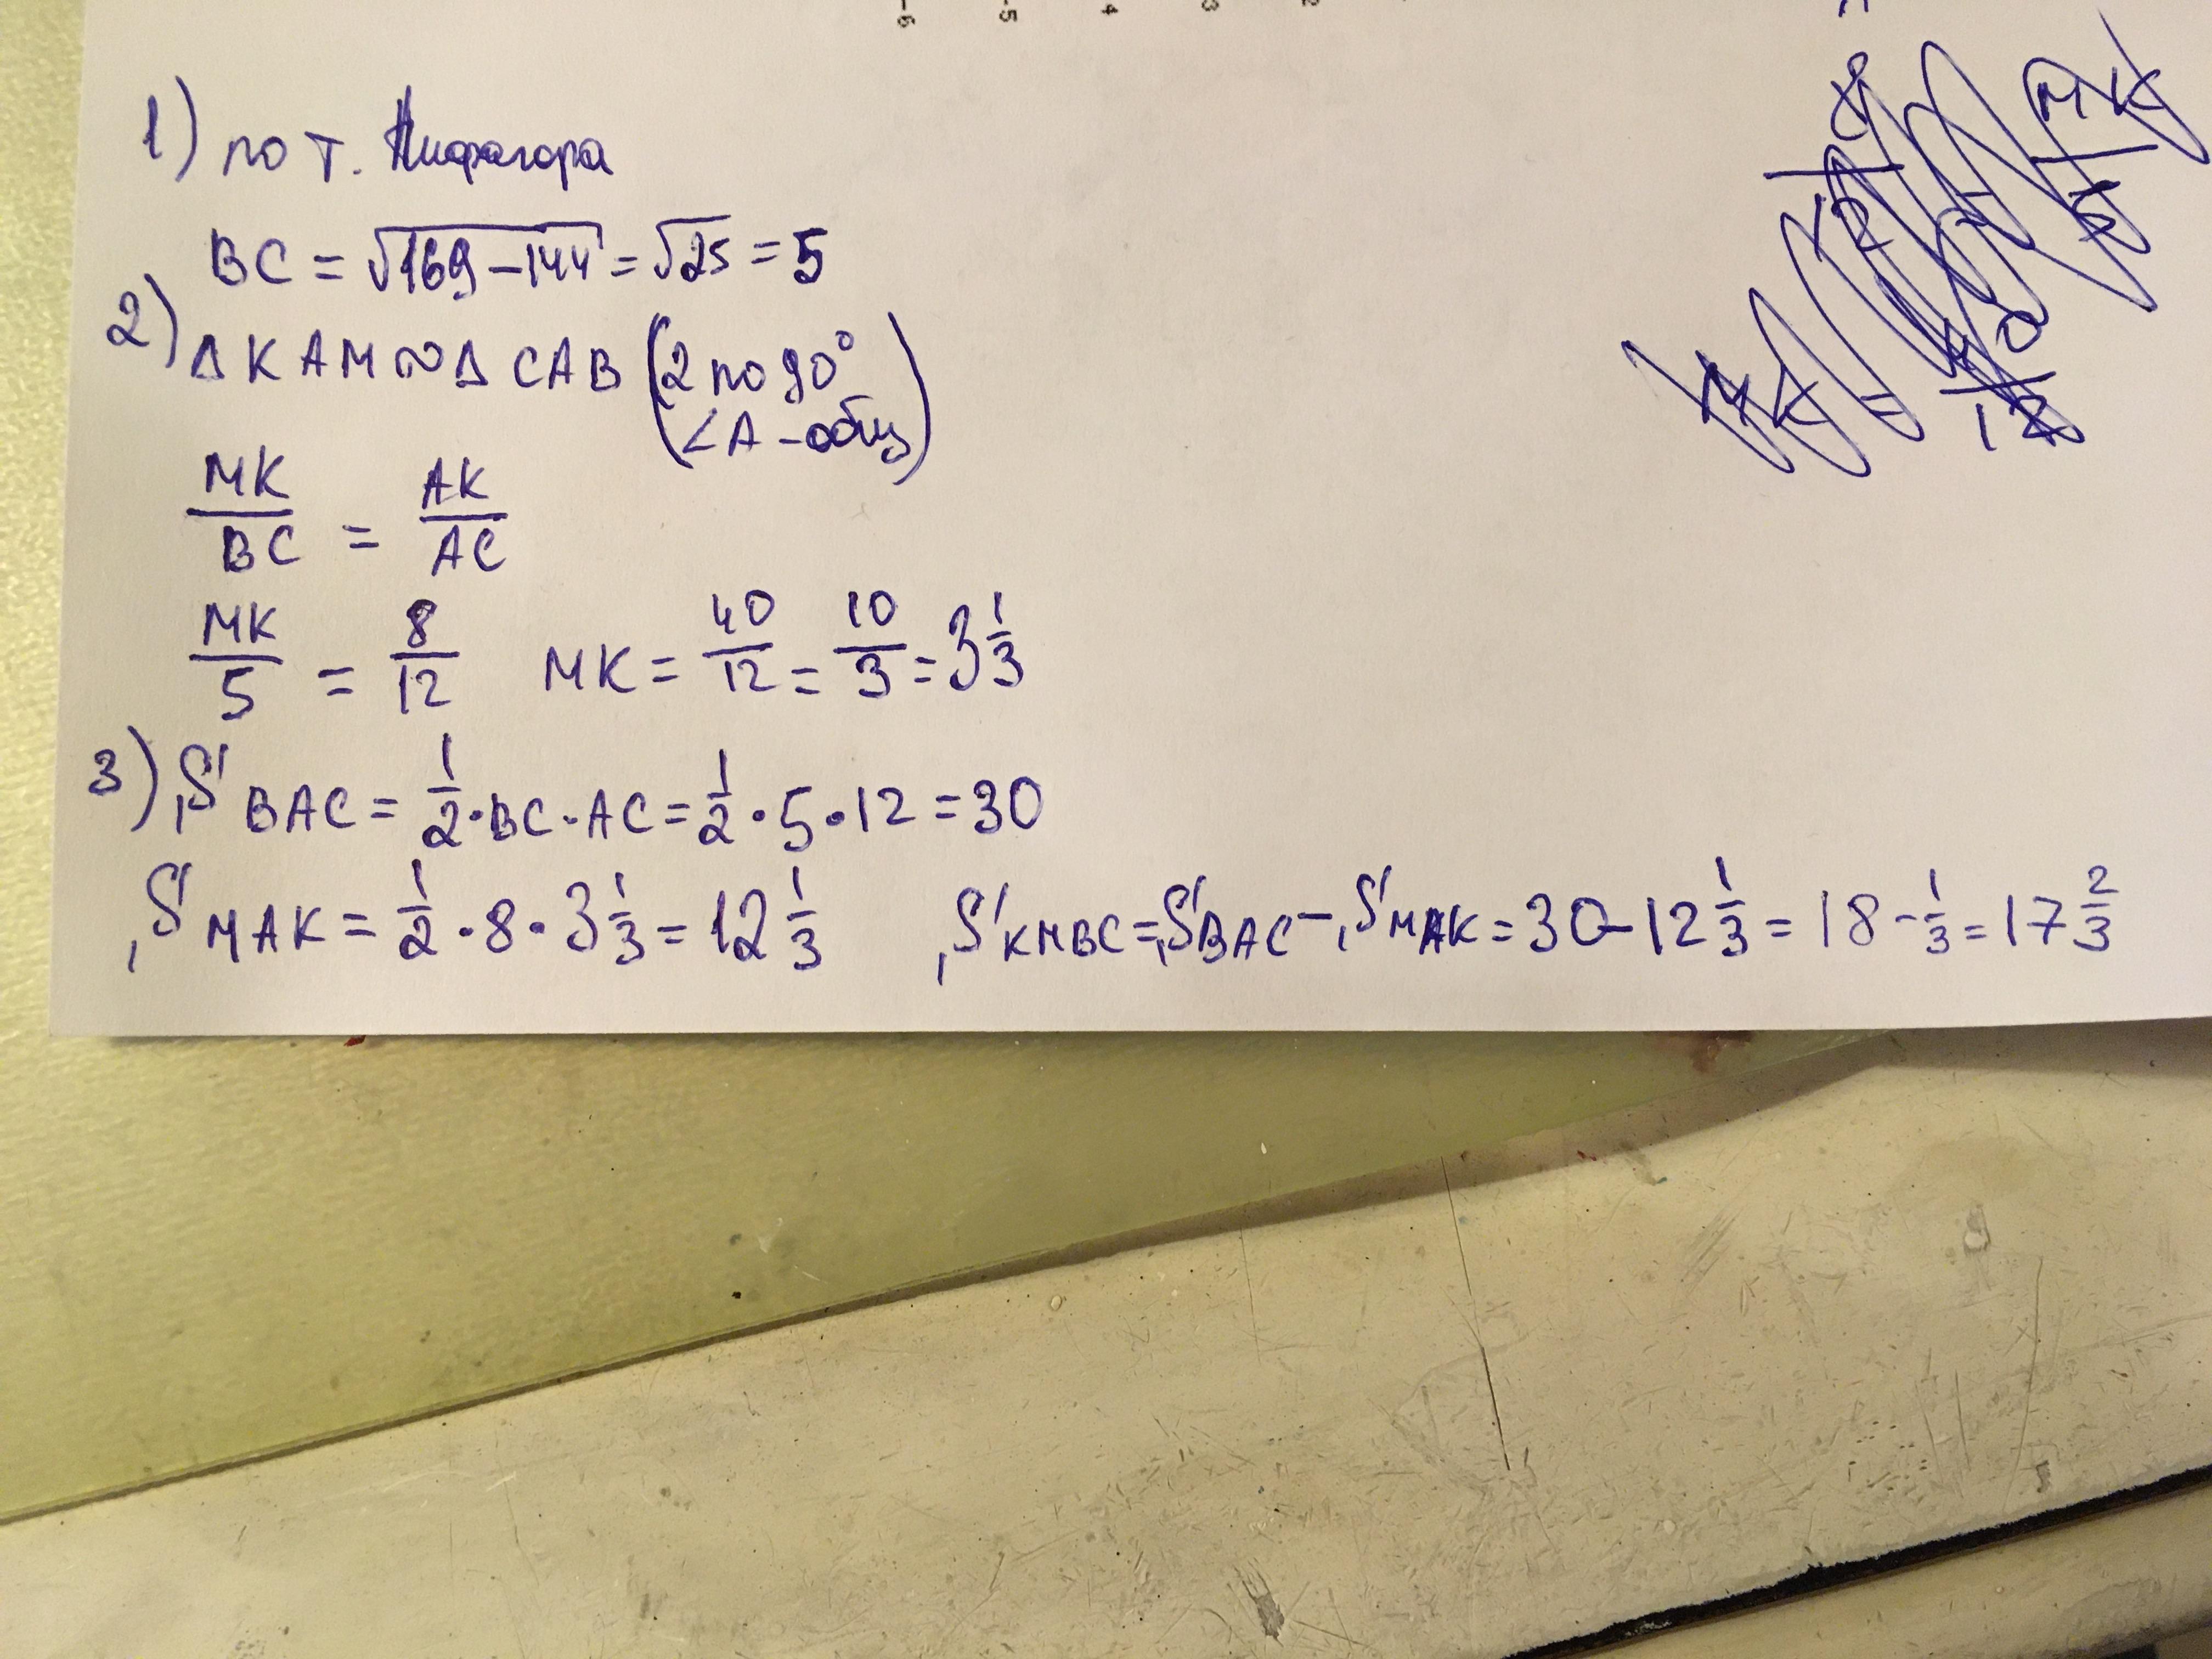 -6 -5 4 3 2
1) по т. Пифагора
BC = √169-144 = √25 = 5
2) Δ KAM ∾ Δ CAB (2 по 90°
∠A - общ)
MK/BC = AK/AC
MK/5 = 8/12 MK = 40/12 = 10/3 = 3 1/3
3) S BAC = 1/2 · BC · AC = 1/2 · 5 · 12 = 30
S MAK = 1/2 · 8 · 3 1/3 = 12 1/3 S KMBC = S BAC - S MAK = 30 - 12 1/3 = 18 - 1/3 = 17 2/3